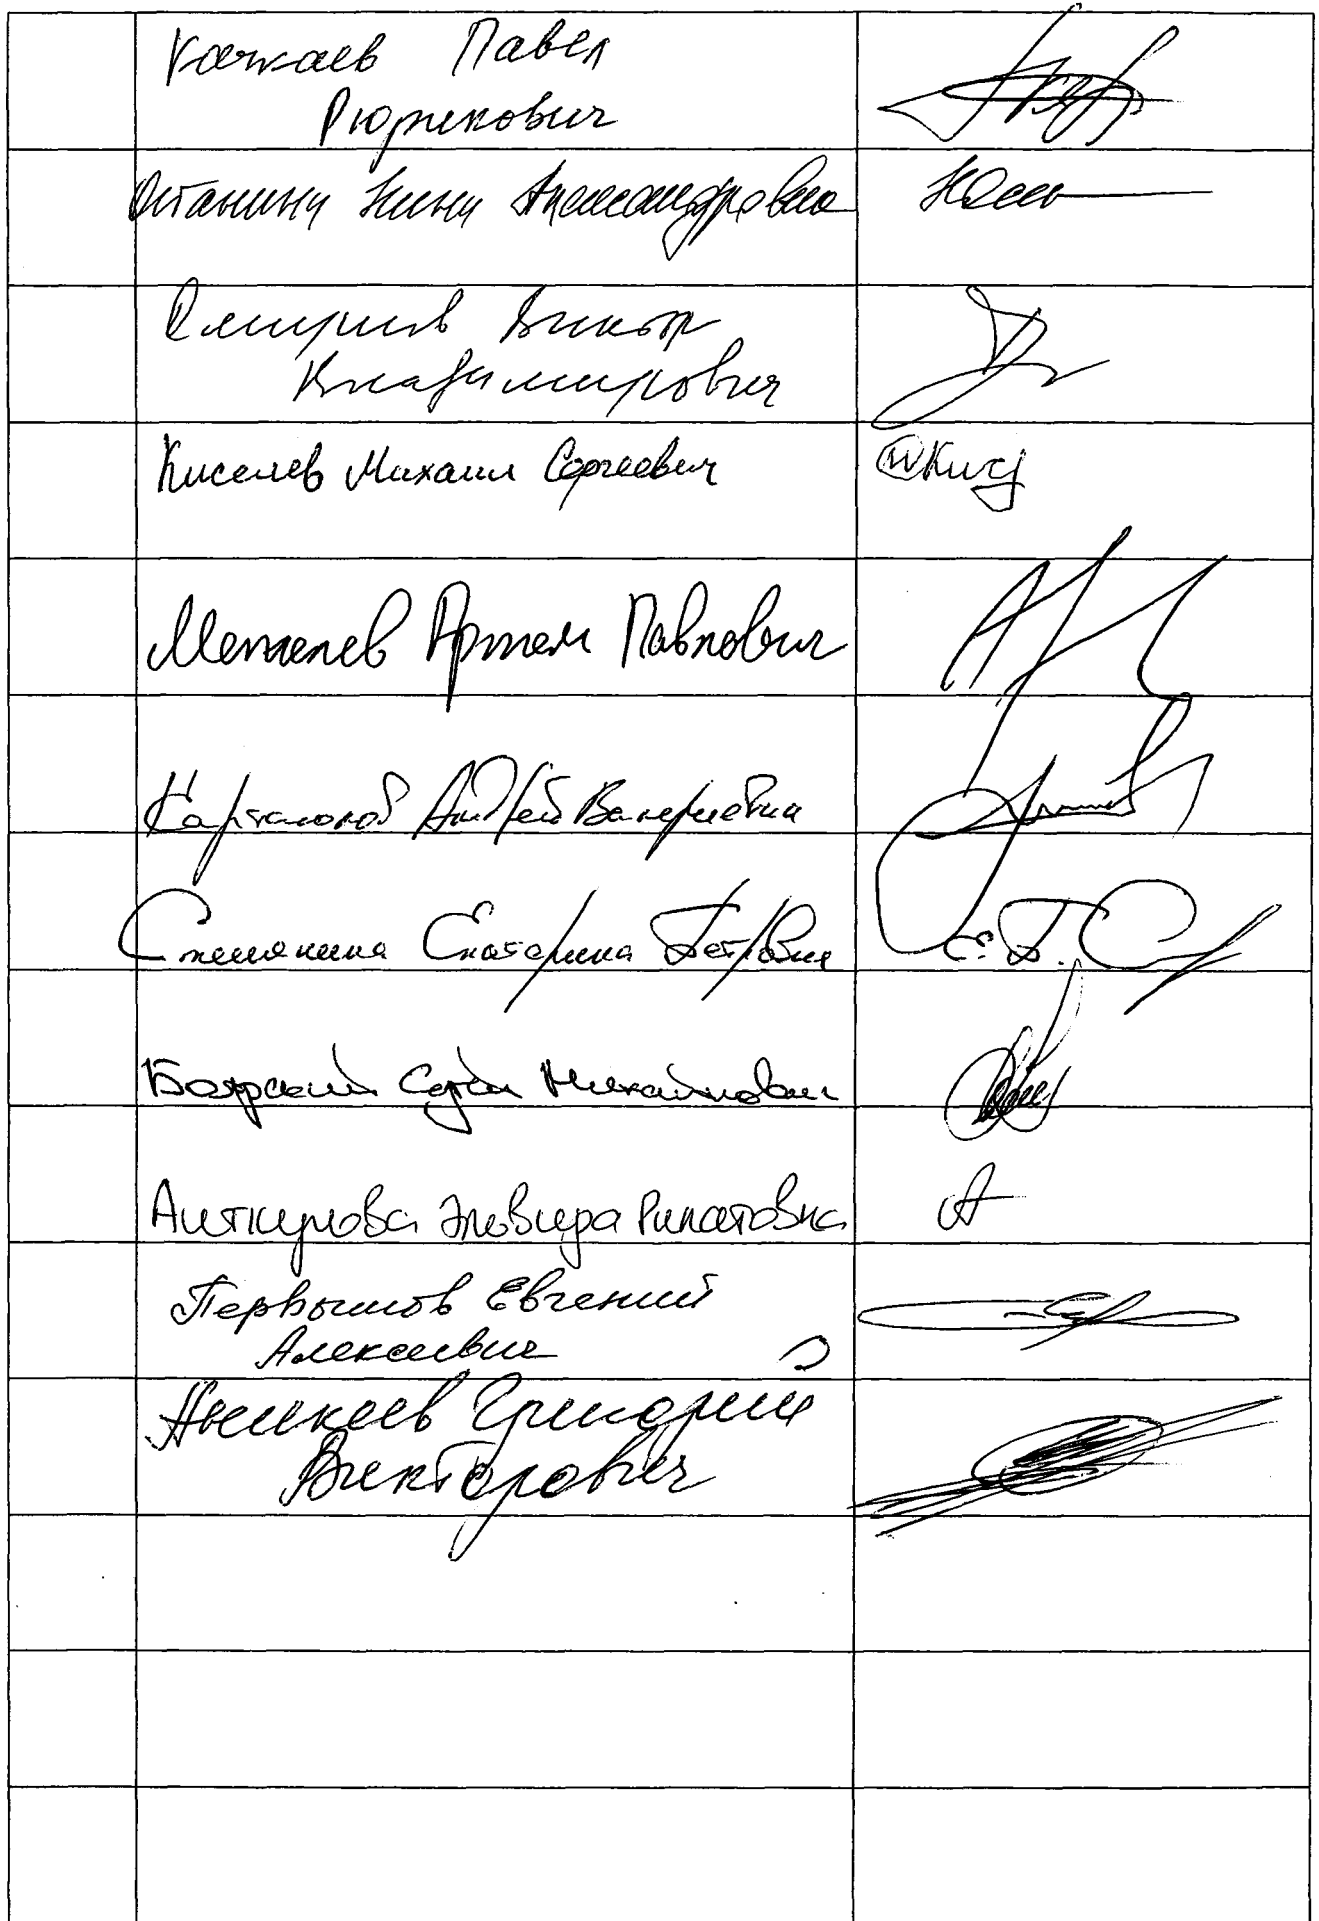 Качкаев Павел
Рюрикович
Останина Нина Александровна
Смирнов Виктор
Владимирович
Киселев Михаил Сергеевич
МКис
Метелев Артем Павлович
Картаполов Андрей Валериевич
Стенякина Екатерина Петровна
Е.П.С
Боярский Сергей Михайлович
Аиткулова Эльвира Ринатовна
А
Первышов Евгений
Алексеевич
Аникеев Григорий
Викторович